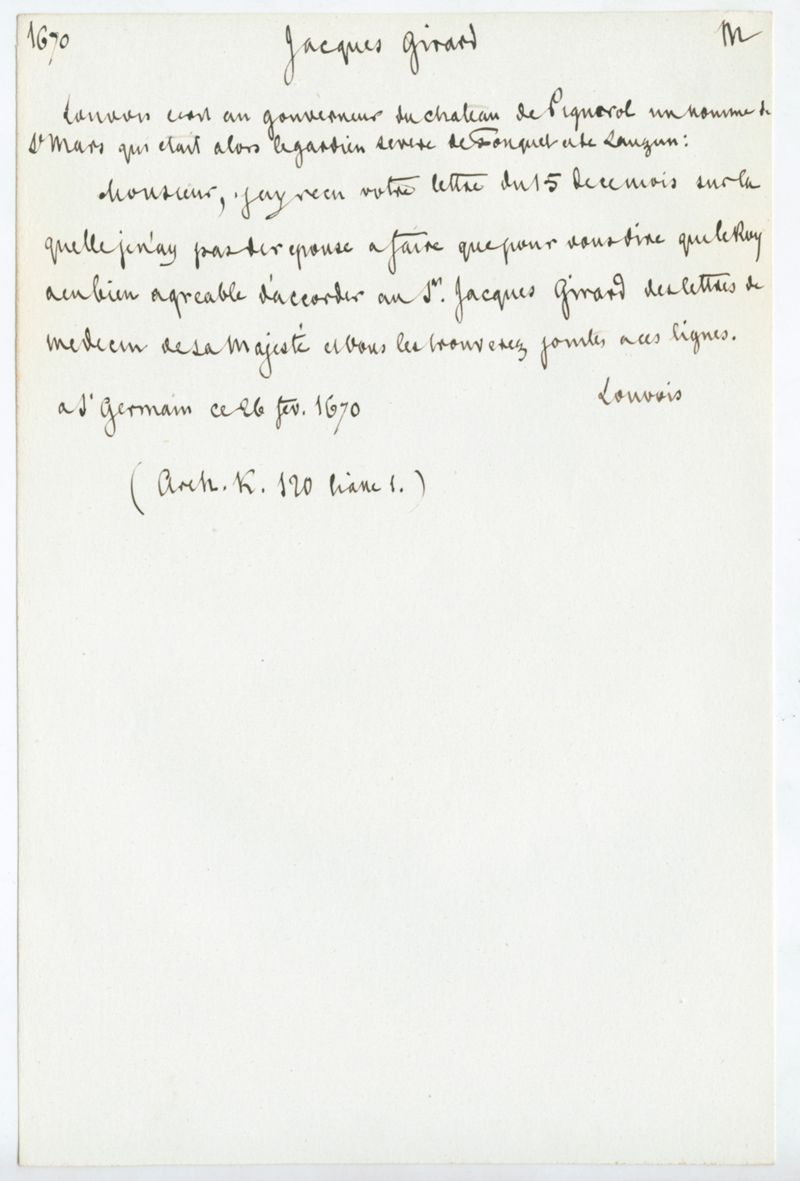 1670 Jacques Girard M
Louvois ecrit au gouverneur du chateau de Pignerol un nomme de
St Mars qui etait alors le gardien severe de Fouquet et de Lauzun :
Monsieur, j'ay receu votre lettre du 15 de ce mois sur la
quelle je n'ay pas de reponse a faire que pour vous dire que le Roy
a eu bien agreable d'accorder au Sr. Jacques Girard des lettres de
medecin de sa Majesté et vous les trouverez jointes a ces lignes.
Louvois
a St Germain ce 26 fev. 1670
(Arch. K. 120 liasse 1.)